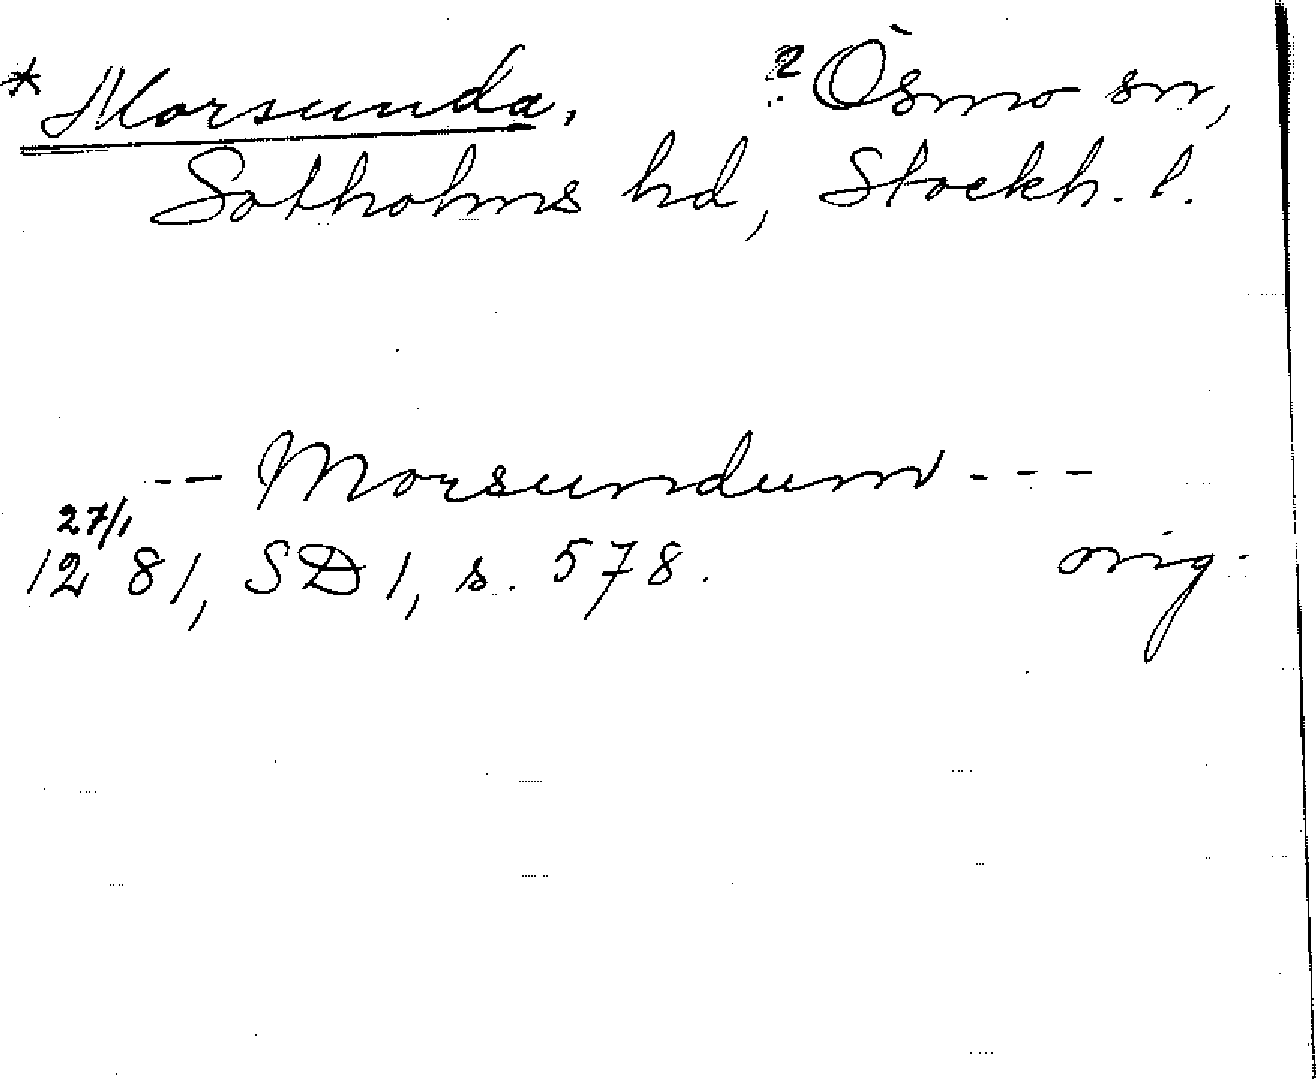 * Morsunda, ? Ösmo sn,
Sotholms hd, Stockh. l.
-- Morsundum ---
27/1
1281, SD 1, s. 578. orig.